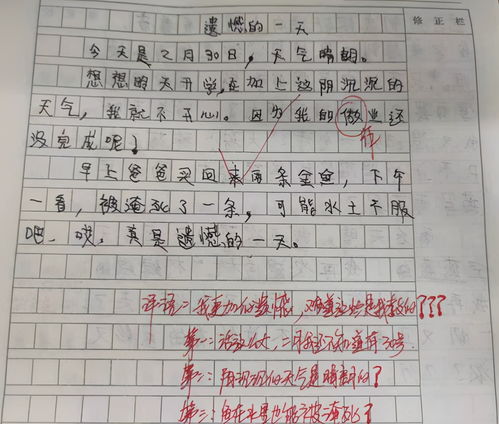 遗憾的一天
修正栏
今天是2月30日，天气晴朗。
想想明天开学，在加上这阴沉沉的
天气，我就不开心。因为我的做业还
作
没完成呢！
早上爸爸买回来两条金鱼，下午
一看，被淹死了一条，可能水土不服
吧，哎，真是遗憾的一天。
评语：我更加的遗憾，难道这些是我教的？？？
第一：活这么大，二月我还不知道有30号.
第二：阴沉沉的天气是晴朗的？
第三：鱼在水里也能被淹死？